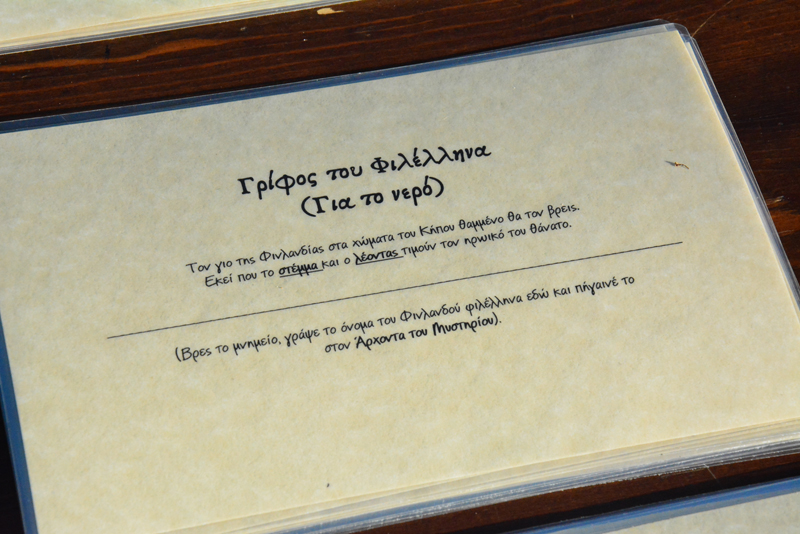 Γρίφος του Φιλέλληνα
(Για το νερό)
Τον γιο της Φινλανδίας στα χώματα του Κήπου θαμμένο θα τον βρεις.
Εκεί που το στέμμα και ο λέοντας τιμούν τον ηρωικό του θάνατο.
(Βρες το μνημείο, γράψε το όνομα του Φινλανδού φιλέλληνα εδώ και πήγαινέ το
στον Άρχοντα του Μυστηρίου).